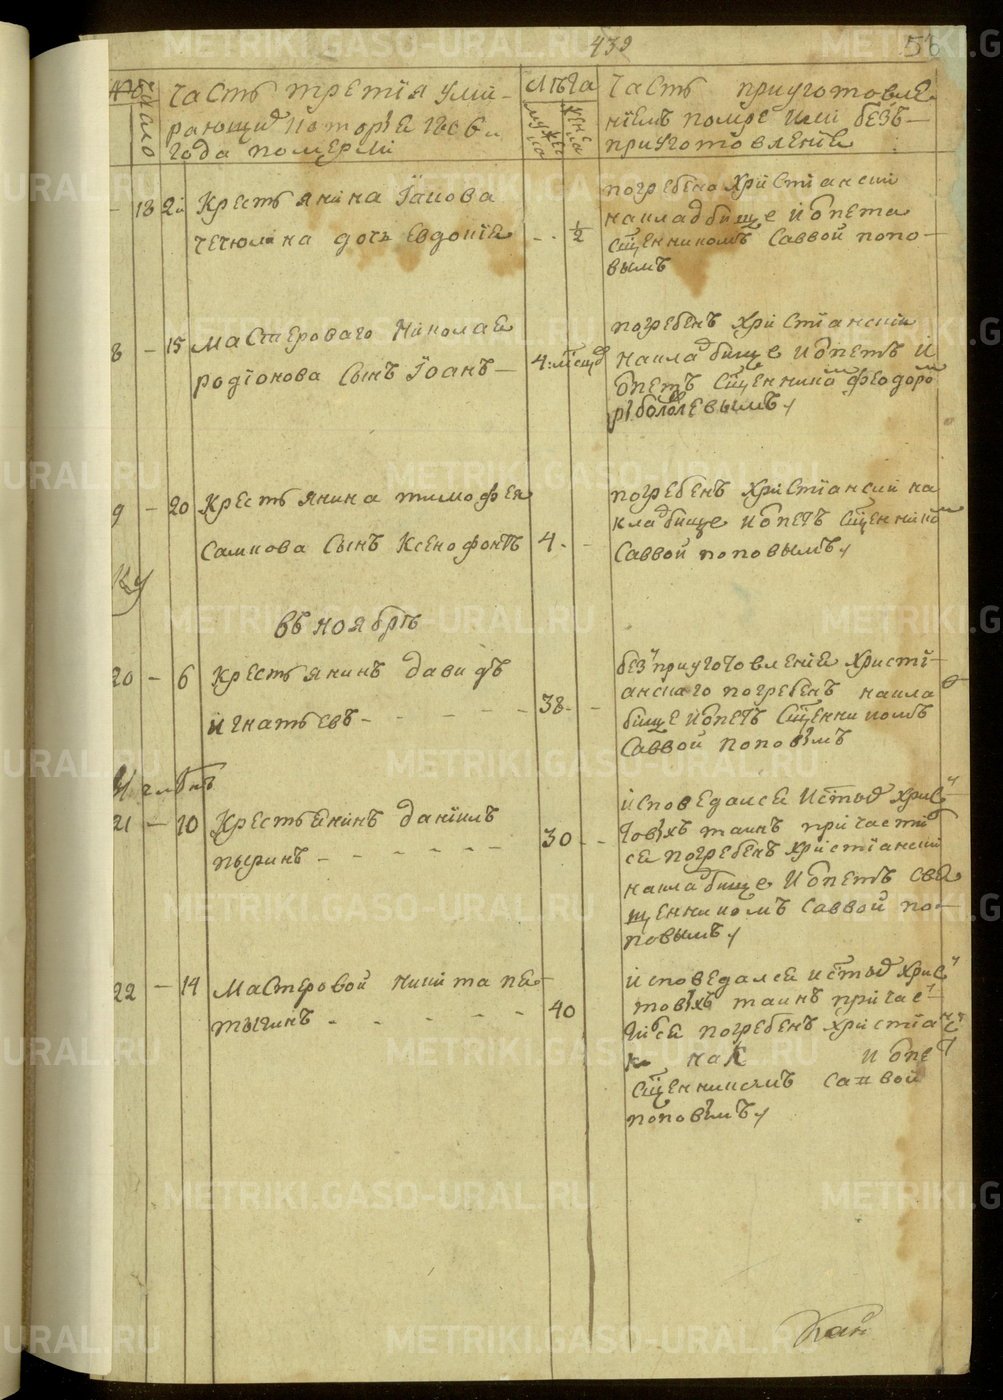 439
58
Число
Часть третія уми-
рающиѯ которые 1806 г
года померли
Лѣта
мужеска
женска
Часть приуготовле
ніемъ помре или безъ
приуготовленіе
- 13 2й Крестьянина Іакова
чечюлина дочь Евдокіе - - ½
погребена христіански
накладбище и отпета
сщенникомъ Саввой попо-
вымъ
8 - 15 Мастероваго Николае
родіонова сынъ Іоанъ - 4: месяц
погребенъ христіански
накладбище и отпетъ и
отпетъ сщенникомъ Феодоромъ
9 - 20 Крестьянина тимофея
самкова сынъ Ксенофонтъ 4 -
погребенъ христіански на
кладбище и отпетъ сщенникомъ
Саввой поповымъ
въ ноябрѣ
20 - 6 Крестьянинъ давидъ
игнатьевъ - - - - - 38 -
без приуготовленіе христі-
анскаго погребенъ накла
бище и отпетъ сщенникомъ
Саввой поповымъ
21 - 10 Крестьенинъ даніилъ
пыринъ - - - - - 30 - -
исповедалсе и стых хрис-
товыхъ таинъ причасти
се погребенъ христіански
накладбище и отпетъ све
щенникомъ Саввой по-
повымъ
22 - 14 Мастеровой Никита пе-
тыгинъ - - - - - 40
исповедалсе и стых хрис
товыхъ таинъ причас-
тился погребенъ христіан
и отпет
сщенникомъ Саввой
поповымъ
METRIKI.GASO-URAL.RU